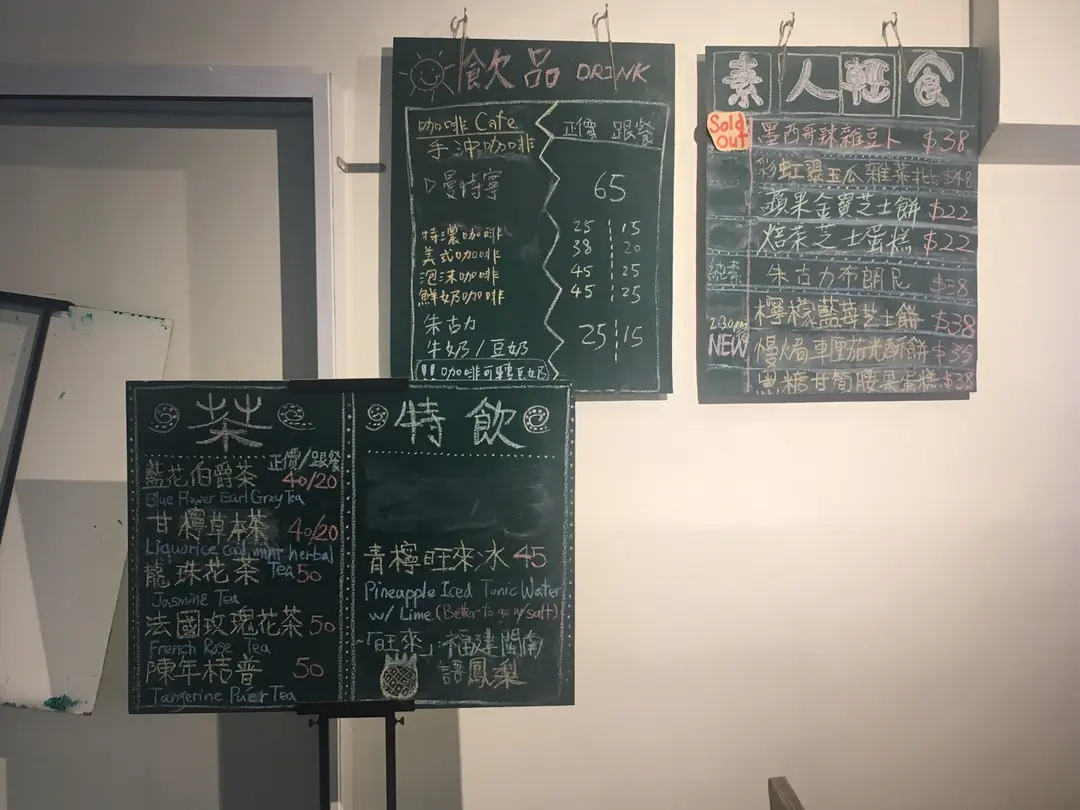 飲品 DRINK
咖啡 Cafe 正價 跟餐
手沖咖啡
曼特寧 65
特濃咖啡 25 15
美式咖啡 38 20
泡沫咖啡 45 25
鮮奶咖啡 45 25
朱古力
牛奶/豆奶 25 15
!! 咖啡可轉豆奶
素人輕食
Sold out
墨西哥辣雜豆卜 $38
彩虹翠玉瓜雜菜批 $48
蘋果金寶芝士餅 $22
焙茶芝士蛋糕 $22
純素 朱古力布朗尼 $38
檸檬藍莓芝士餅 $38
2:30pm
NEW 慢焗車厘茄光酥餅 $35
黑糖甘筍腰果蛋糕 $38
茶
正價/跟餐
藍花伯爵茶 40/20
Blue Flower Earl Grey Tea
甘檸草本茶 40/20
Liquorice cool mint herbal Tea
龍珠花茶 50
Jasmine Tea
法國玫瑰花茶 50
French Rose Tea
陳年桔普 50
Tangerine Pu'er Tea
特飲
青檸旺來冰 45
Pineapple Iced Tonic Water
w/ Lime (Better to go w/ salt)
~「旺來」:福建閩南
語鳳梨